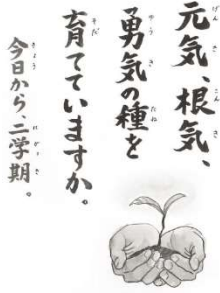 元気、根気、
勇気の種を
育てていますか。
今日から、二学期。